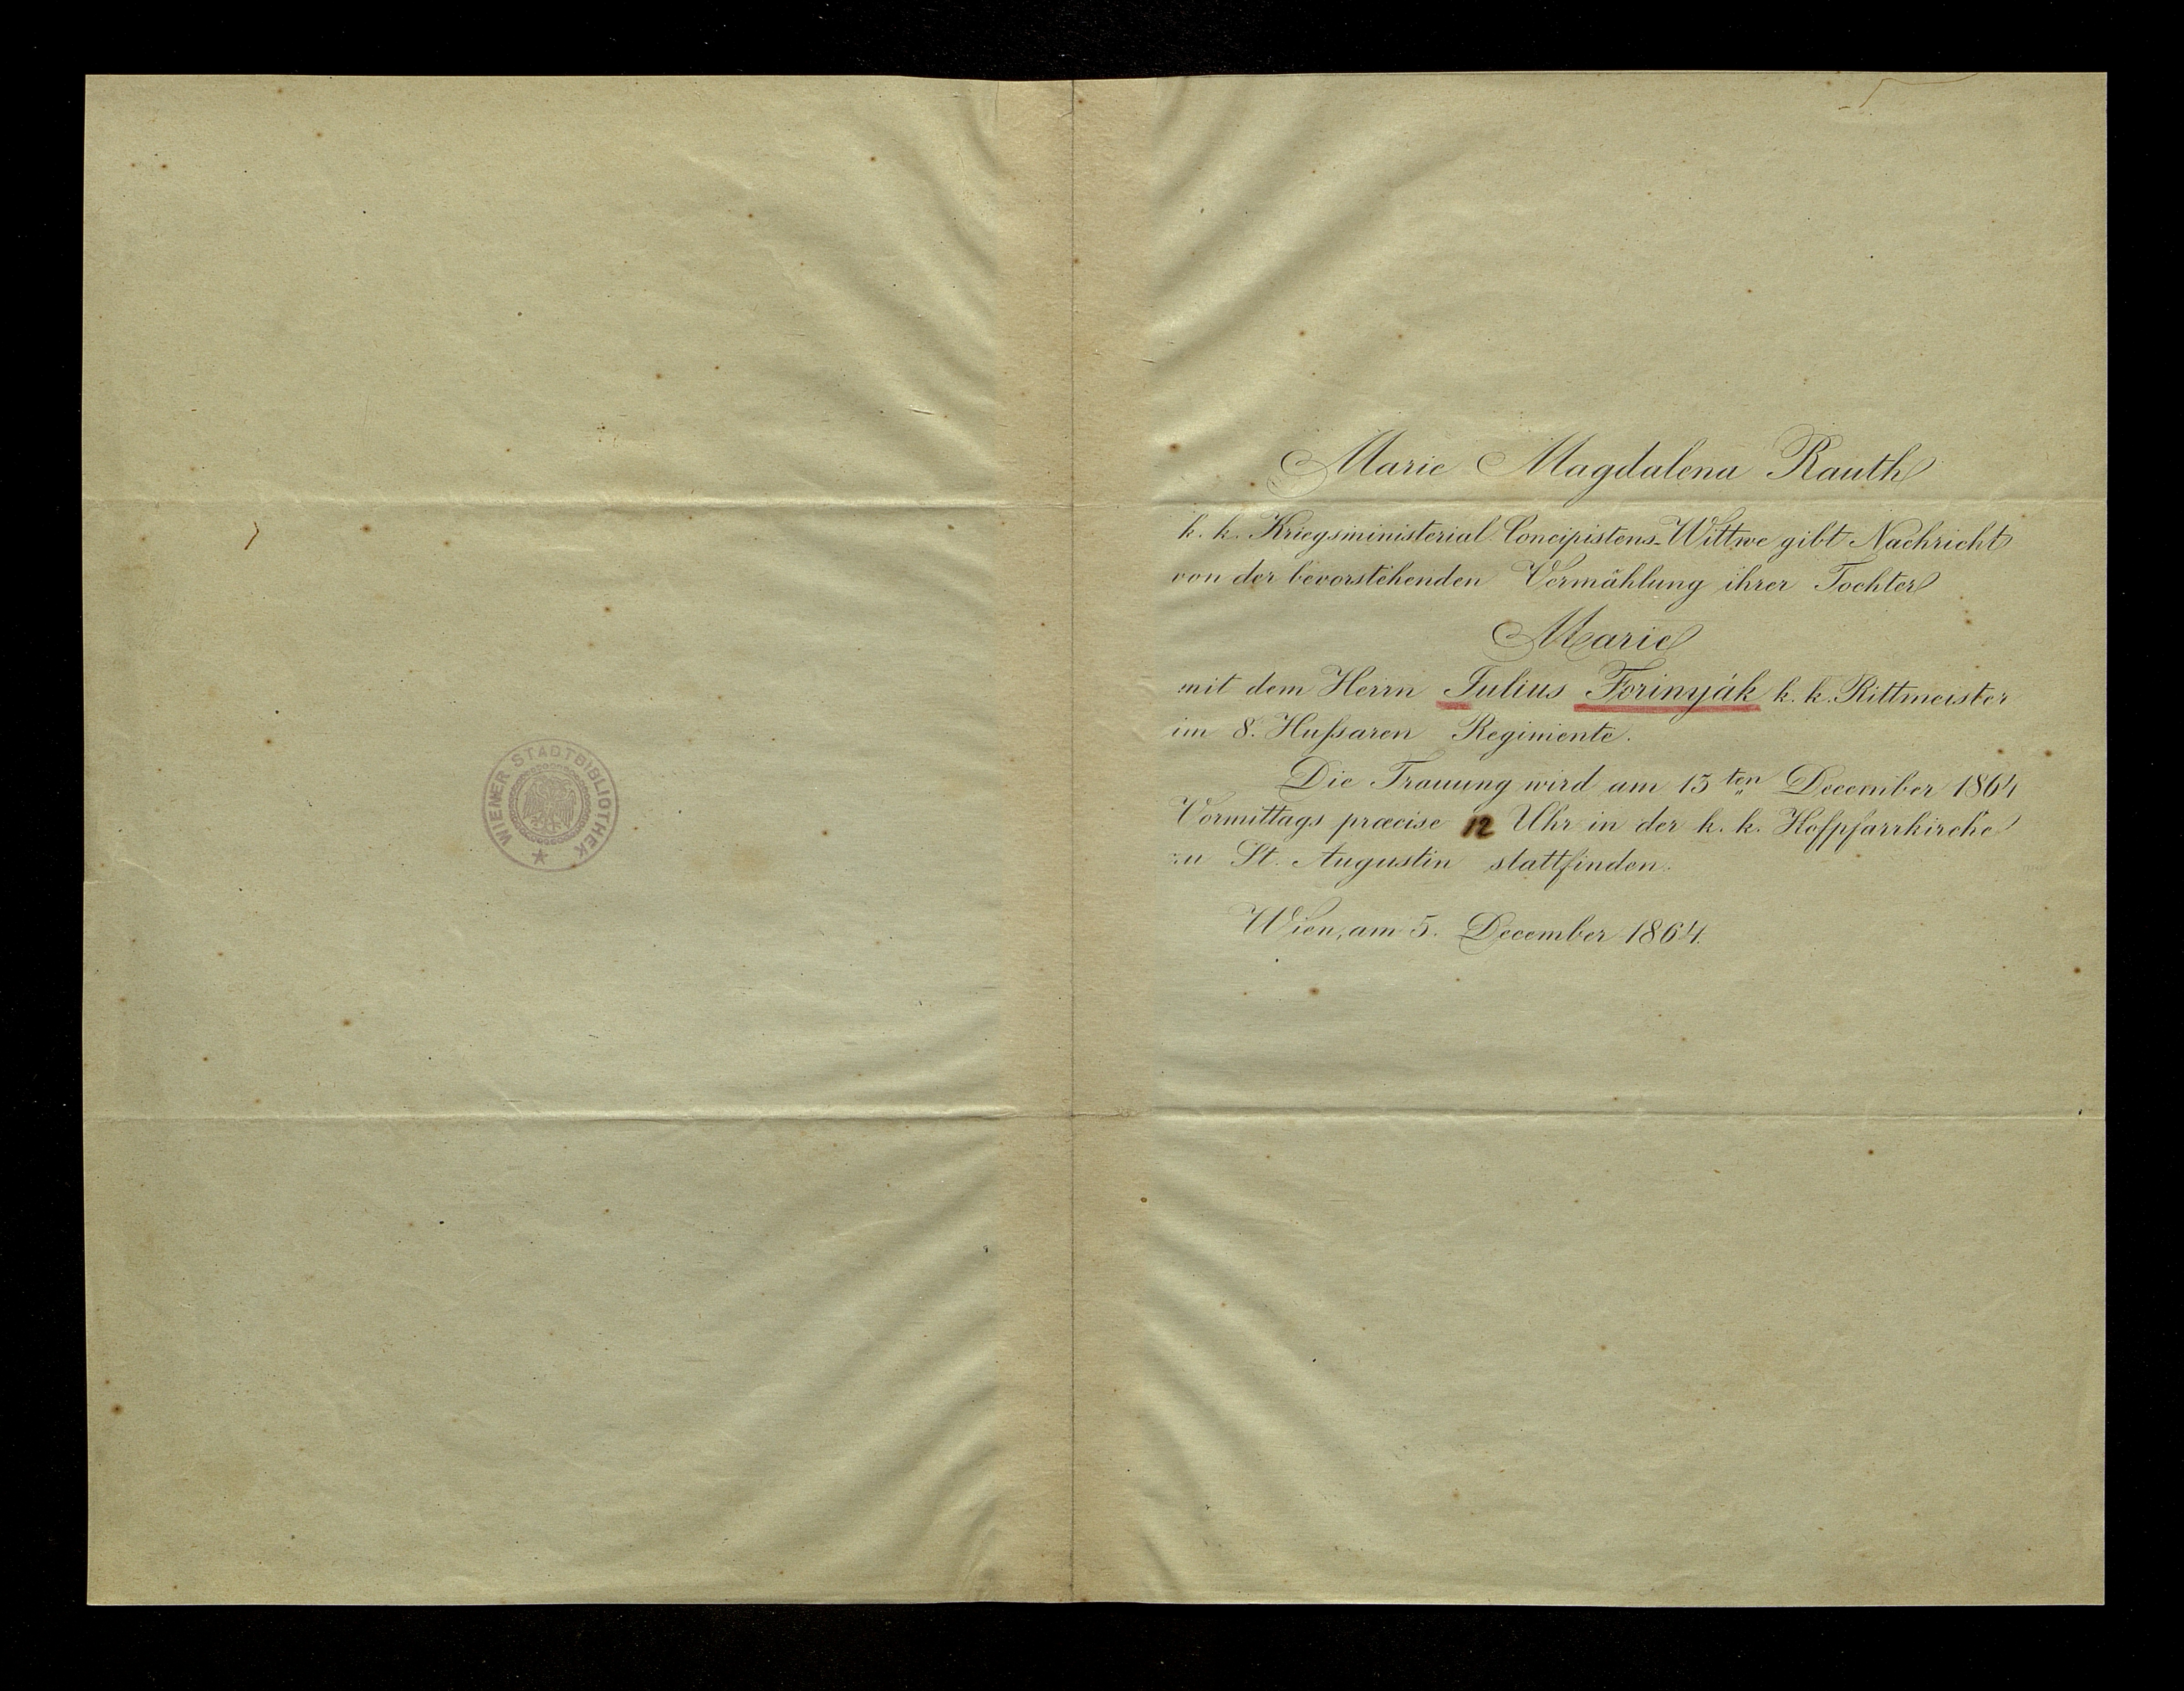 WIENER STADTBIBLIOTHEK
Marie Magdalena Rauth
k. k. Kriegsministerial Concipistens-Wittwe gibt Nachricht
von der bevorstehenden Vermählung ihrer Tochter
Marie
mit dem Herrn Julius Forinyák k. k. Rittmeister
im 8. Hußaren Regimente.
Die Trauung wird am 15ten December 1864
Vormittags præcise 12 Uhr in der k. k. Hofpfarrkirche
zu St. Augustin stattfinden.
Wien, am 5. December 1864.